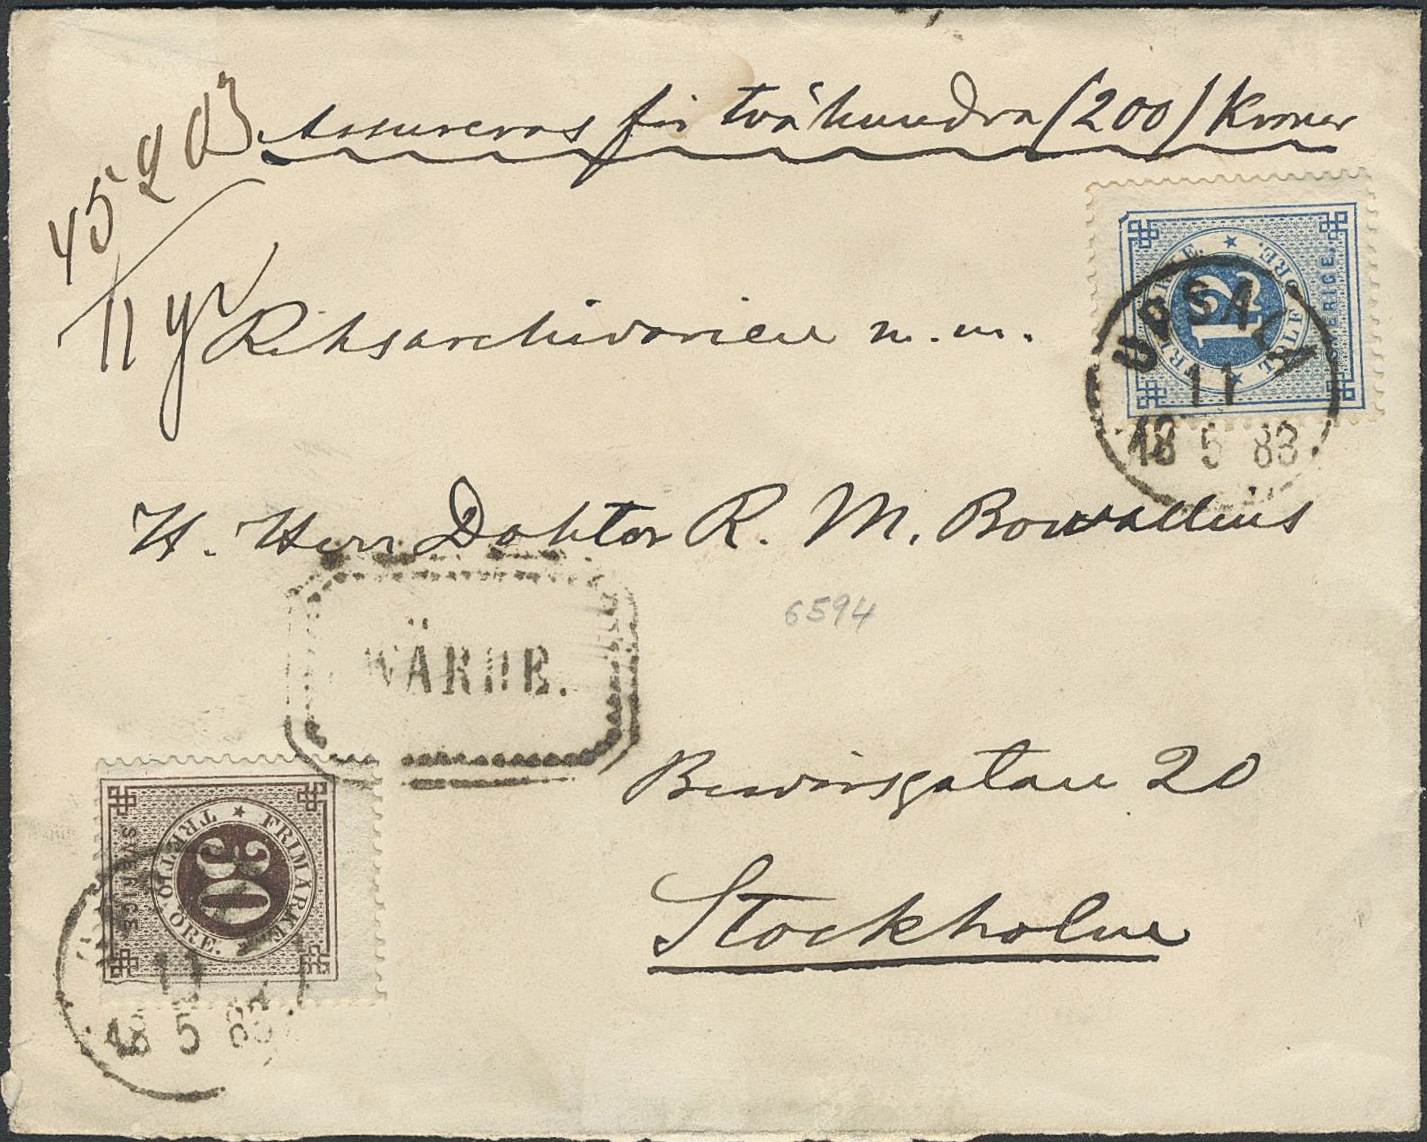 45203
Assureras för tvåhundra (200) Kronor
11 gr
Riksarchivarien m. m.
H. Herr Doktor R. M. Bowallius
6594
Brunnsgatan 20
Stockholm
FRIMÄRKE. TOLF ÖRE.
12
SVERIGE.
UPSALA
11
18 5 83
WÄRDE.
FRIMÄRKE TRETIO ÖRE.
30
SVERIGE
11
18 5 83